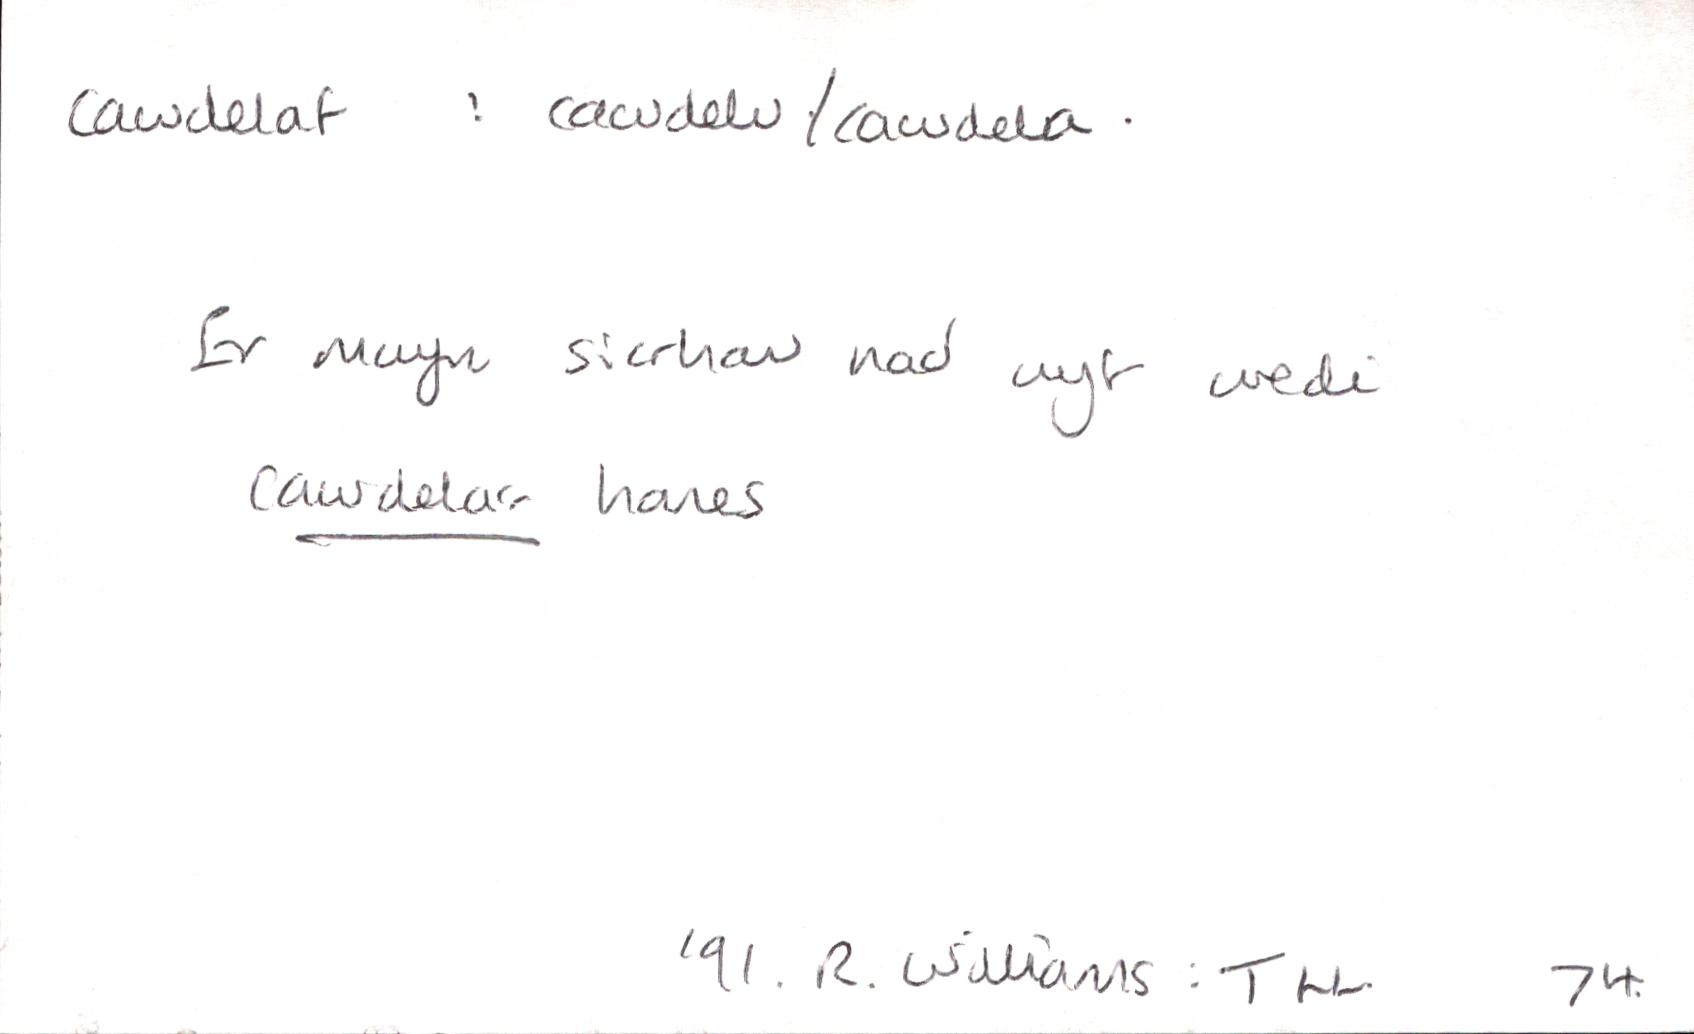 cawdelaf : cawdelu / cawdela.
Er mwyn sicrhau nad wyt wedi
cawdelar hanes
'91. R. Williams : T LL. 74.